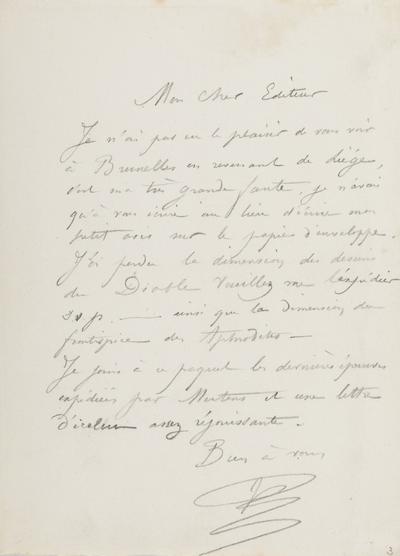 Mon cher Editeur
Je n'ai pas eu le plaisir de vous voir
à Bruxelles en revenant de Liége,
c'est ma très grande faute, je n'avais
qu'à vous écrire au lieu d'écrire mon
petit avis sur le papier d'enveloppe.
J'ai perdu la dimension des dessins
du Diable Veuillez me l'expédier
s.v.p. — ainsi que la dimension du
frontispice des Aphrodites —
Je joins à ce paquet les dernières épreuves
expédiées par Mertens et une lettre
d'icelui assez réjouissante.
Bien à vous
3